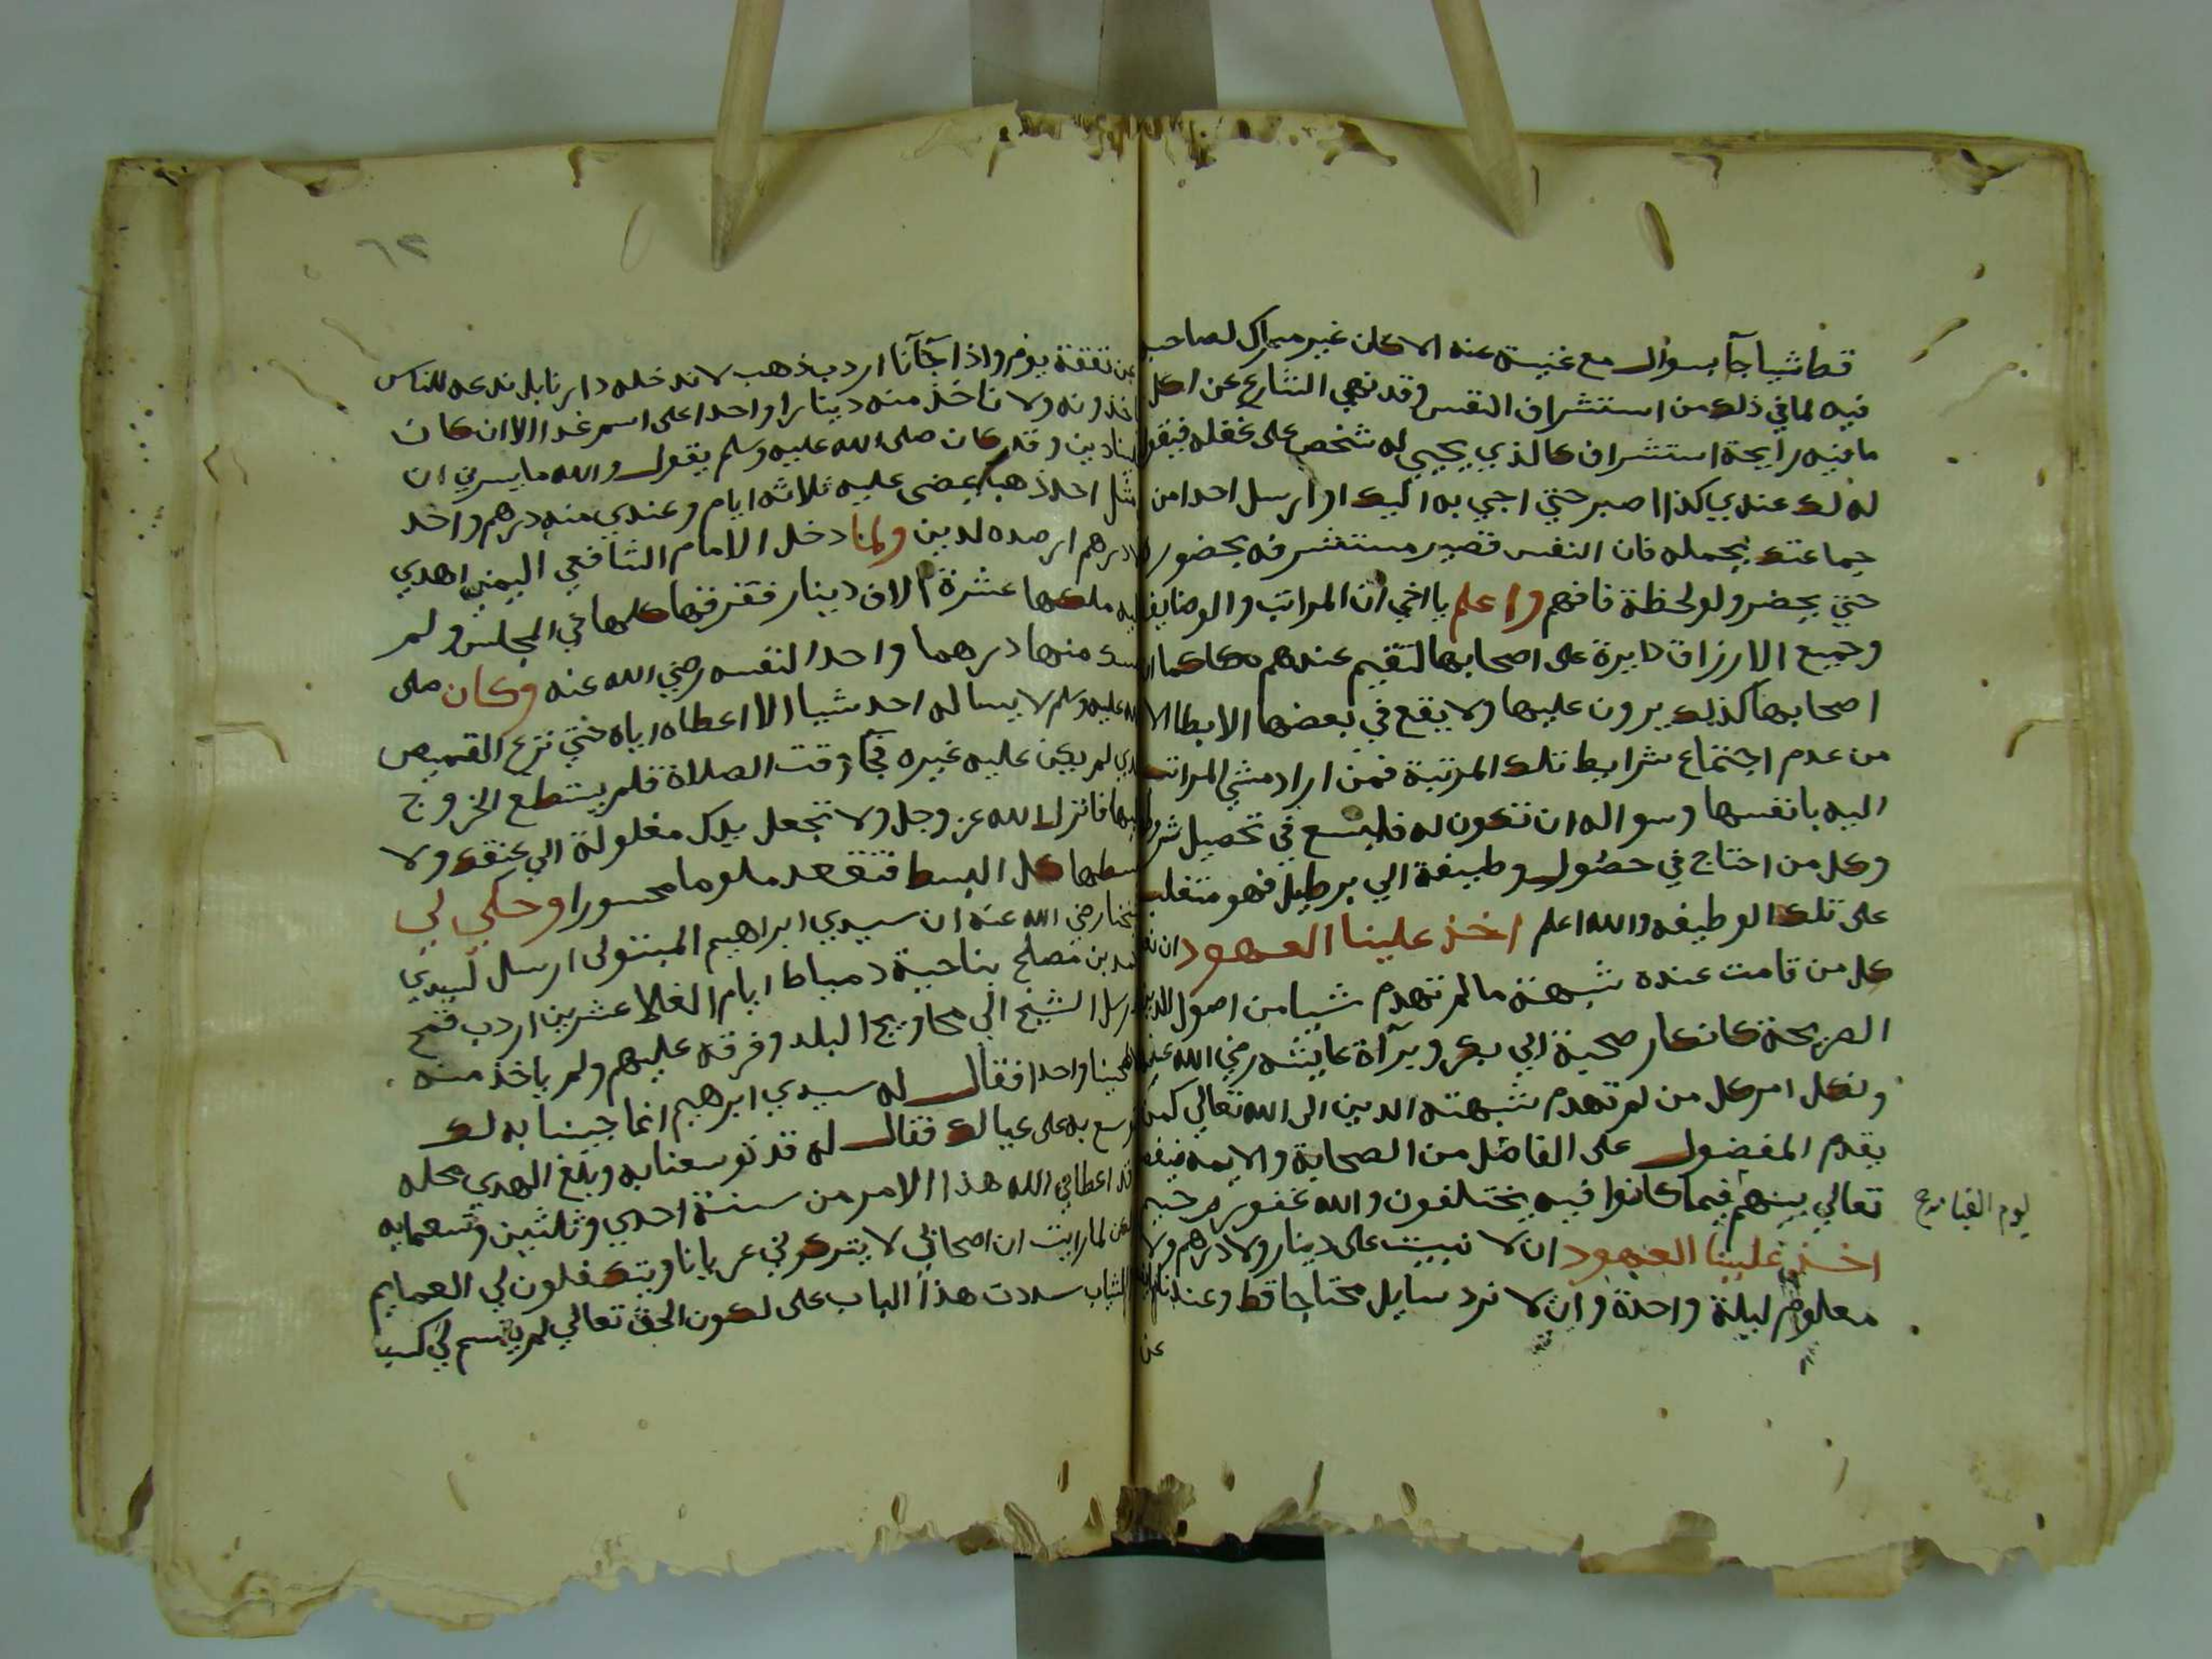 قط شيا جآ بسوال مع غيبته عنه الا كان غير مبارك لصاحبه
فيه لما في ذلك من استشراف النفس وقد نهي الشارع عن اكل
ما فيه رايحة استشراف كالذي يجيي له شخص على غفله فيقول
له لك عندي كذا اصبر حتي اجي به اليك او ارسل احدا من
جماعتك يحمله فان النفس تصير مستشرفه بحضور
حتي يحضر ولو لحظة فافهم واعلم يا اخي ان المراتب والوضايف
وجميع الارزاق دايرة على اصحابها لتقيم عندهم كما ان
اصحابها كذلك يرون عليها ولا يقع في بعضها الابطا الا
من عدم اجتماع شرايط تلك المرتبة فمن اراد مشي المراتب
اليه بانفسها وسواله ان تكون له فليسع في تحصيل شروطها
وكل من احتاج في حصول وظيفة الي برطيل فهو متغلب
على تلك الوظيفه والله اعلم اخذ علينا العهود ان
كل من قامت عنده شبهة ما لم تهدم شيا من اصول الدين
الصريحة كانكار صحبة ابي بكر وبرآة عايشه رضي الله عنها
ونكل امر كل من لم تهدم شبهته الدين الى الله تعالي كمن
يقدم المفضول على الفاضل من الصحابة والايمه
تعالي بينهم فيما كانوا فيه يختلفون والله غفور رحيم
يوم القيامة صح
اخذ علينا العهود ان لا نبيت على دينار ولا درهم ولا
معلوم ليلة واحدة وان لا نرد سايل محتاجا قط وعندنا
عن
٦٢
عن نفقة يوم واذا جآنا اردب ذهب لا ندخله دارنا بل ندعه للناس
ياخذونه ولا ناخذ منه دينارا واحدا على اسم غد الا ان كان
علينا دين وقد كان صلى الله عليه وسلم يقول والله ما يسرني ان
مثل احد ذهبا يمضي عليه ثلاثه ايام وعندي منه درهم واحد
الا درهم ارصده لدين ولما دخل الامام الشافعي اليمن اهدي
اليه ملكها عشرة آلاف دينار ففرقها كلها في المجلس ولم
يمسك منها درهما واحدا لنفسه رضي الله عنه وكان صلى
الله عليه وسلم لا يساله احد شيا الا اعطاه اياه حتي نزع القميص
الذي لم يكن عليه غيره فجآ وقت الصلاة فلم يستطع الخروج
اليها فانزل الله عز وجل ولا تجعل يدك مغلولة الي عنقك ولا
تبسطها كل البسط فتقعد ملوما محسورا وحكي لي
شيخنا رضي الله عنه ان سيدي ابراهيم المتبولي ارسل لسيدي
محمد بن مصلح بناحية دمياط ايام الغلا عشرين اردب قمح
فارسل الشيخ الي محاويج البلد وفرقه عليهم ولم ياخذ منه
طحينا واحدا فقال له سيدي ابرهيم انما جينا به لك
توسع به على عيالك فقال له قد توسعنا به وبلغ الهدي محله
وقد اعطاني الله هذا الامر من سنة احدي وثلثين وتسعمايه
لكن لما رايت ان اصحابي لا يتركوني عريانا ويتكفلون لي العمايم
والثياب سددت هذا الباب على لكون الحق تعالي لم يقسم لي كسب